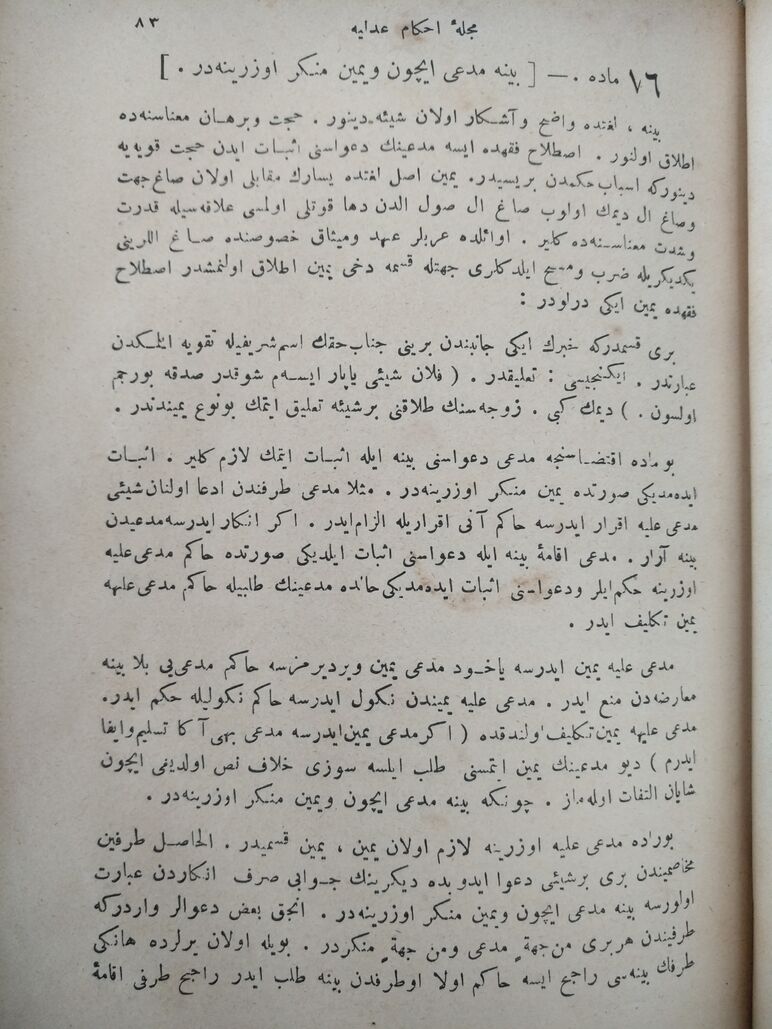 مجلهٔ احكام عدليه ٨٣
٧٦ ماده . — [ بينه مدعى ايچون ويمين منكر اوزرينه‌در . ]
بينه ، لغتده واضح و آشكار اولان شيئه دينور . حجت و برهان معناسنه‌ده
اطلاق اولنور . اصطلاح فقهده ايسه مدعينك دعواسنى اثبات ايدن حجت قويه‌يه
دينوركه اسباب حكمدن بريسيدر. يمين اصل لغتده يسارك مقابلى اولان صاغ جهت
وصاغ ال ديمك اولوب صاغ ال صول الدن دها قوتلى اولمسى علاقه‌سيله قدرت
وشدت معناسنه‌ده كلير . اوائلده عربلر عهد وميثاق خصوصنده صاغ اللرينى
يكديكريله ضرب و مسح ايلدكلرى جهتله قسمه دخى يمين اطلاق اولنمشدر اصطلاح
فقهده يمين ايكى درلودر :
برى قسمدركه خبرك ايكى جانبندن برينى جناب حقك اسم شريفيله تقويه ايلمكدن
عبارتدر . ايكنجيسى : تعليقدر . ( فلان شيئى ياپار ايسه‌م شوقدر صدقه بورجم
اولسون . ) ديمك كبى . زوجه‌سنك طلاقنى برشيئه تعليق ايتمك بونوع يميندندر .
بو ماده اقتضاسنجه مدعى دعواسنى بينه ايله اثبات ايتمك لازم كلير . اثبات
ايده‌مديكى صورتده يمين منكر اوزرينه‌در . مثلا مدعى طرفندن ادعا اولنان شيئى
مدعى عليه اقرار ايدرسه حاكم آنى اقراريله الزام ايدر . اكر انكار ايدرسه مدعيدن
بينه آرار . مدعى اقامهٔ بينه ايله دعواسنى اثبات ايلديكى صورتده حاكم مدعى عليه
اوزرينه حكم ايلر ودعواسنى اثبات ايده‌مديكى حالده مدعينك طلبيله حاكم مدعى عليهه
يمين تكليف ايدر .
مدعى عليه يمين ايدرسه ياخود مدعى يمين ويرديرمزسه حاكم مدعى‌يى بلا بينه
معارضه‌دن منع ايدر . مدعى عليه يميندن نكول ايدرسه حاكم نكوليله حكم ايدر.
مدعى عليهه يمين تكليف اولندقده ( اكر مدعى يمين ايدرسه مدعى بهى آ كا تسليم وايفا
ايدرم ) ديو مدعينك يمين ايتمسنى طلب ايلسه سوزى خلاف نص اولديغى ايچون
شايان التفات اوله‌ماز . چونكه بينه مدعى ايچون ويمين منكر اوزرينه‌در .
بوراده مدعى عليه اوزرينه لازم اولان يمين ، يمين قسميدر . الحاصل طرفين
مخاصميندن برى برشيئى دعوا ايدوبده ديكرينك جوابى صرف انكاردن عبارت
اولورسه بينه مدعى ايچون ويمين منكر اوزرينه‌در . انجق بعض دعوالر واردركه
طرفيندن هربرى من جهةٍ مدعى ومن جهةٍ منكردر . بويله اولان يرلرده هانكى
طرفك بينه‌سى راجح ايسه حاكم اولا اوطرفدن بينه طلب ايدر راجح طرفى اقامهٔ